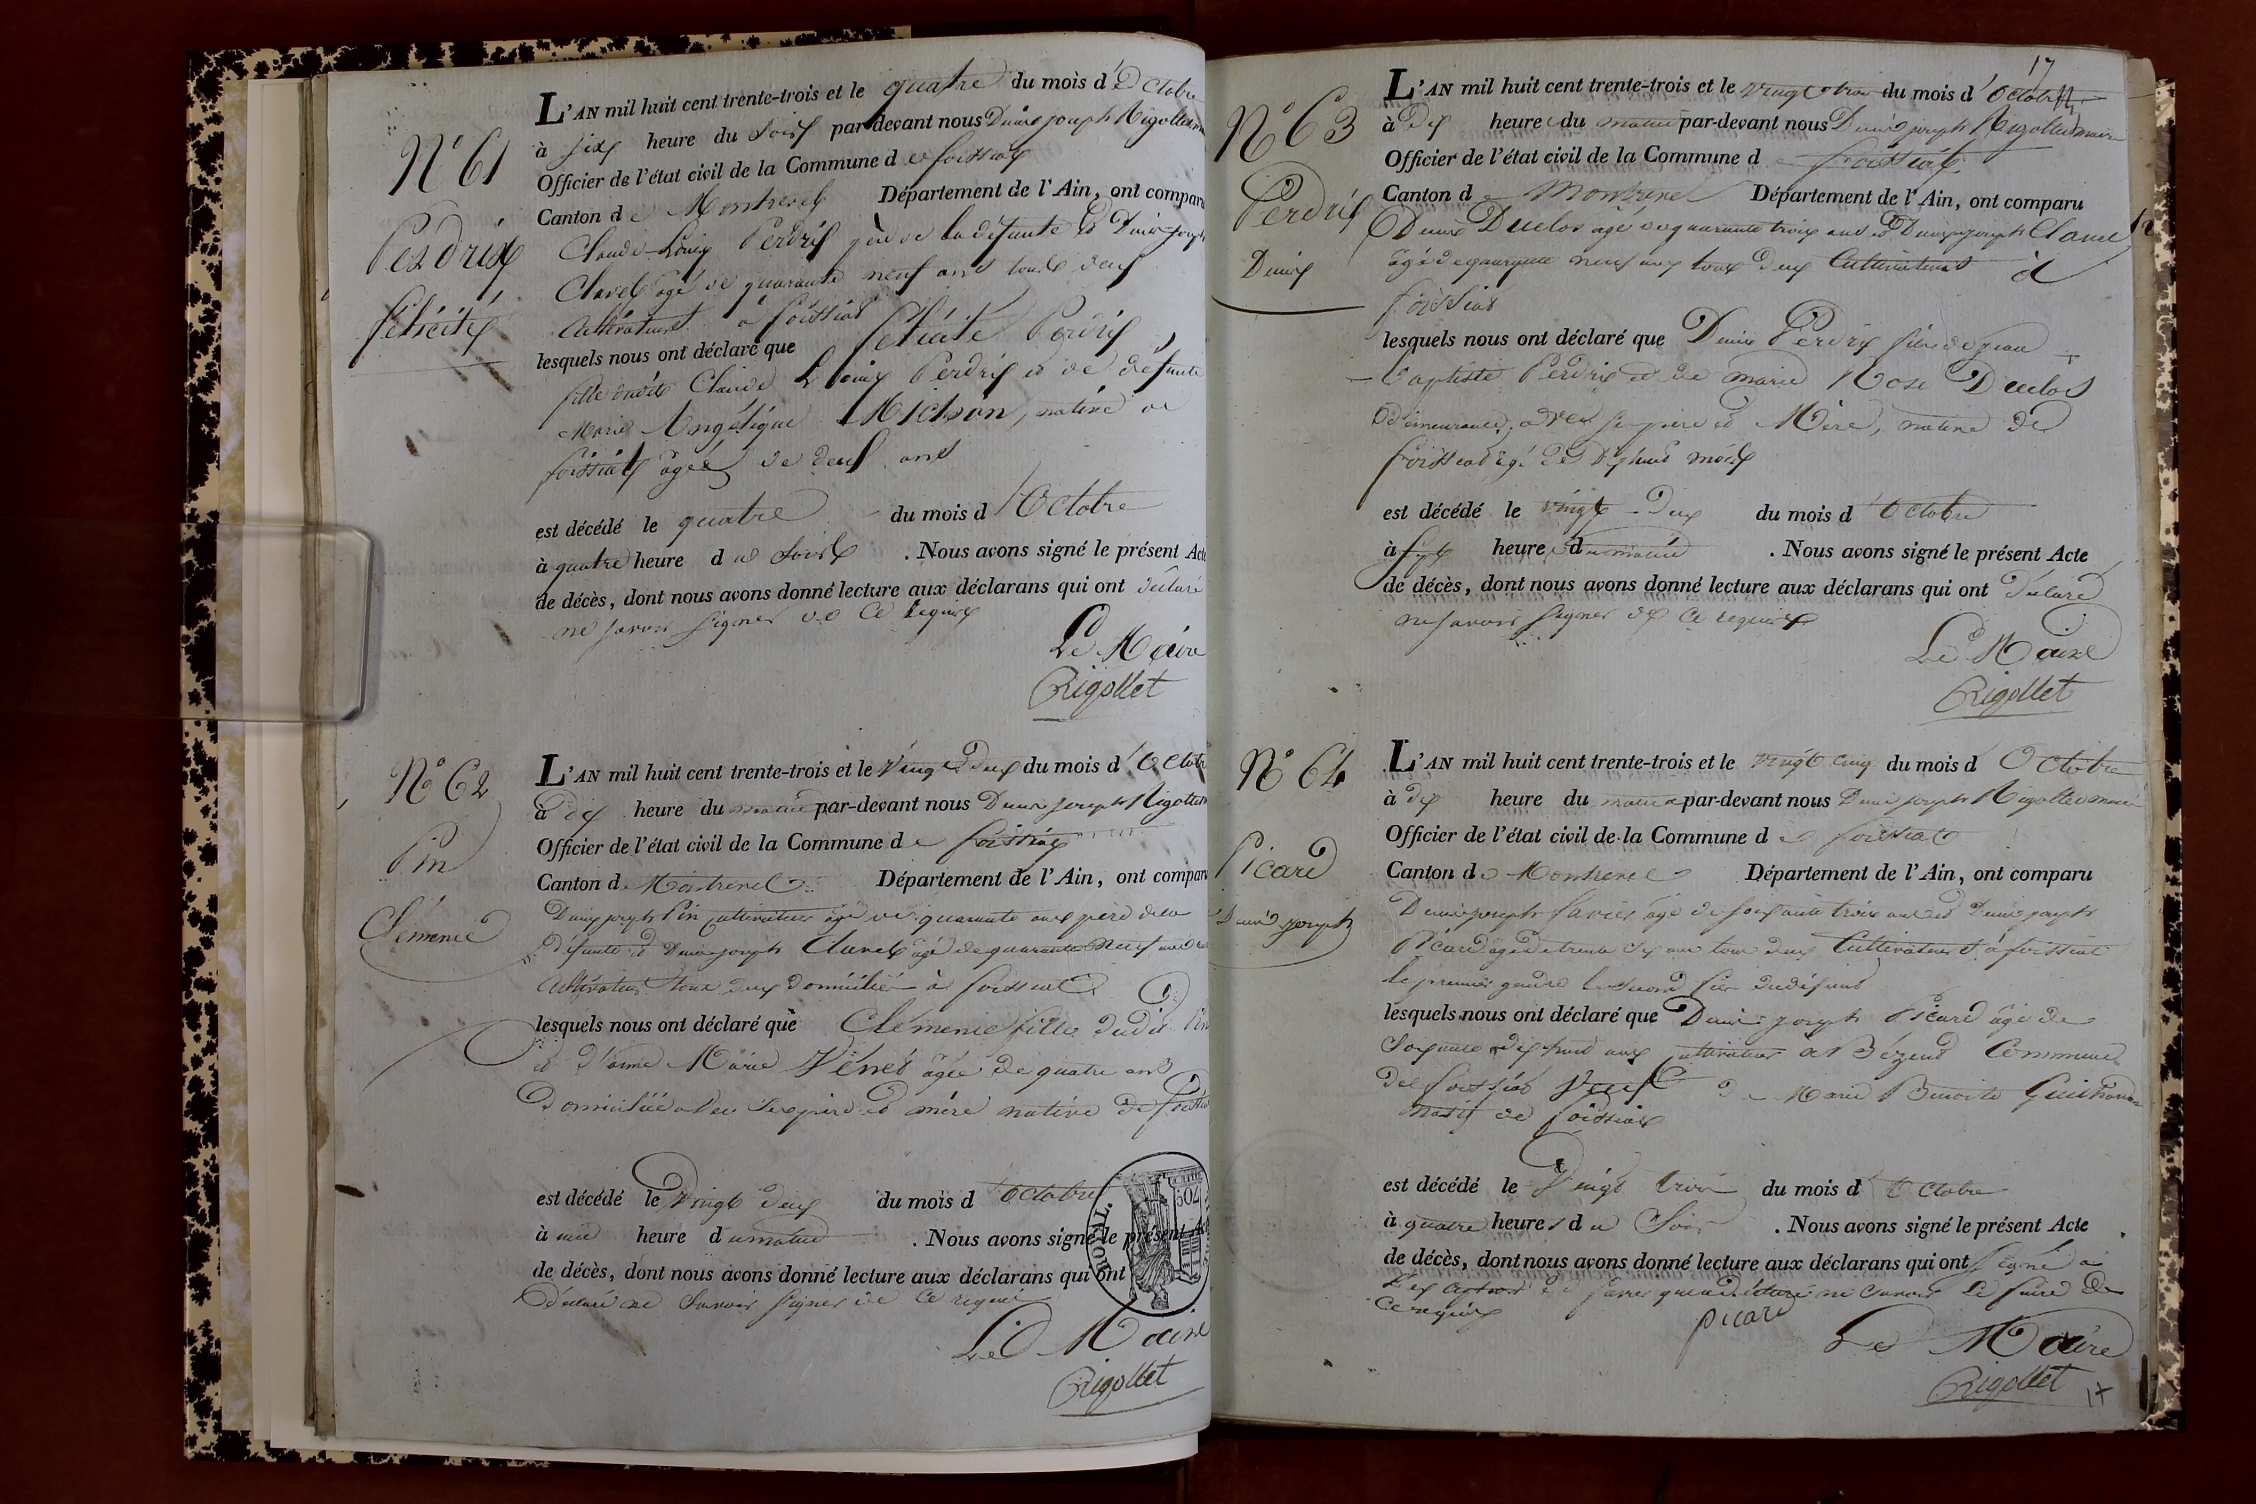 N° 61
Perdrix
félicité
L'AN mil huit cent trente-trois et le quatre du mois d'Octobre
à six heure du Soir par-devant nous Denis joseph Rigollet
Officier de l'état civil de la Commune de foissiat
Canton de Montrevel Département de l'Ain, ont comparu
Claude Louis Perdrix père de la défunte et Denis joseph
Clavel âgé de quarante neuf ans tous deux
Cultivateurs à foissiat
lesquels nous ont déclaré que félicité Perdrix
fille dudit Claude Louis Perdrix et de défunte
Marie Angélique Michon, native de
foissiat âgée de deux ans
est décédé le quatre du mois d'Octobre
à quatre heure du Soir . Nous avons signé le présent Acte
de décès, dont nous avons donné lecture aux déclarans qui ont déclaré
ne savoir signer de ce requis
Le Maire
Rigollet
N° 62
Pin
Clémence
L'AN mil huit cent trente-trois et le Vingt deux du mois d'Octobre
à dix heure du matin par-devant nous Denis joseph Rigollet
Officier de l'état civil de la Commune de foissiat
Canton de Montrevel Département de l'Ain, ont comparu
Denis joseph Pin cultivateur âgé de quarante ans père de la
défunte et Denis joseph Clavel âgé de quarante neuf ans
Cultivateur tous deux domiciliés à foissiat
lesquels nous ont déclaré que Clémence fille dudit Pin
et d'anne Marie Vénet âgée de quatre ans
domiciliée avec ses père et mère native de foissiat
est décédé le Vingt deux du mois d'Octobre
à une heure du matin . Nous avons signé le présent Acte
de décès, dont nous avons donné lecture aux déclarans qui ont
déclaré ne savoir signer de ce requis
Le Maire
Rigollet
17
N° 63
Perdrix
Denis
L'AN mil huit cent trente-trois et le vingt trois du mois d'Octobre
à dix heure du matin par-devant nous Denis joseph Rigollet maire
Officier de l'état civil de la Commune de foissiat
Canton de Montrevel Département de l'Ain, ont comparu
Denis Duclos âgé de quarante trois ans et Denis joseph Clavel
âgé de quarante neuf ans tous deux Cultivateurs à
foissiat
lesquels nous ont déclaré que Denis Perdrix fils de jean
Baptiste Perdrix et de marie Rose Duclos
demeurant avec ses père et Mère, native de
foissiat âgé de dixhuit mois
est décédé le vingt deux du mois d'Octobre
à sept heure du matin . Nous avons signé le présent Acte
de décès, dont nous avons donné lecture aux déclarans qui ont déclaré
ne savoir signer de ce requis
Le Maire
Rigollet
N° 64
Picard
Denis joseph
L'AN mil huit cent trente-trois et le vingt cinq du mois d'Octobre
à dix heure du matin par-devant nous Denis joseph Rigollet maire
Officier de l'état civil de la Commune de foissiat
Canton de Montrevel Département de l'Ain, ont comparu
Denis joseph âgé de soixante trois ans et Denis joseph
Picard âgé de trente six ans tous deux Cultivateurs à foissiat
le premier gendre le second fils du défunt
lesquels nous ont déclaré que Denis joseph Picard âgé de
Soixante dix huit ans cultivateur à Bézent Commune
de foissiat veuf de Marie Benoite
natif de foissiat
est décédé le Vingt trois du mois d'Octobre
à quatre heures du Soir . Nous avons signé le présent Acte
de décès, dont nous avons donné lecture aux déclarans qui ont signé à
qui a déclaré ne savoir le faire de
ce requis
picard
Le Maire
Rigollet
17